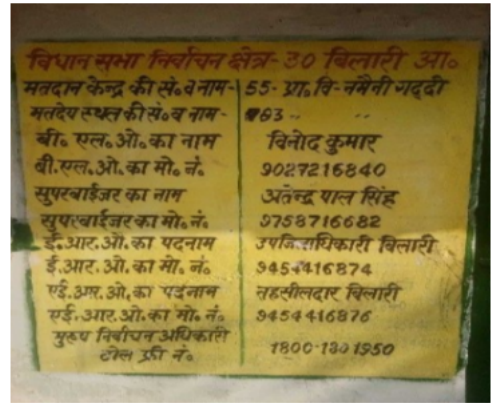 विधान सभा निर्वाचन क्षेत्र- 30 बिलारी आ॰
मतदान केन्द्र की सं॰ व नाम- 55- प्रा॰ वि- नमैनी गद्दी
मतदेय स्थल की सं॰ व नाम - 63 〃 〃
बी॰ एल॰ओ॰का नाम विनोद कुमार
बी.एल.ओ.का मो॰ नं. 9027216840
सुपरवाईजर का नाम अतेन्द्र पाल सिंह
सुपरवाईजर का मो॰ नं. 9758716682
ई.आर.ओ.का पदनाम उपजिलाधिकारी बिलारी
ई.आर.ओ.का मो॰ नं॰ 9454416874
एई.आर.ओ.का पदनाम तहसीलदार बिलारी
एई.आर.ओ.का मो॰ नं॰ 9454416876
मुख्य निर्वाचन अधिकारी
टोल फ्री नं॰ 1800-180 1950